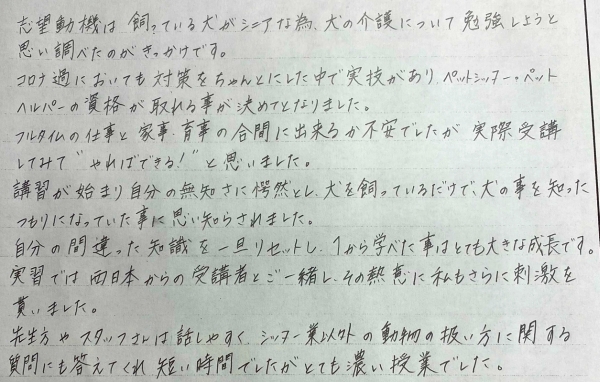 志望動機は 飼っている犬がシニアな為、犬の介護について 勉強しようと
思い調べたのがきっかけです。
コロナ過においても 対策をちゃんとにした中で実技があり、ペットシッター・ペット
ヘルパーの資格が取れる事が決めてとなりました。
フルタイムの仕事と 家事、育事の合間に出来るか不安でしたが 実際受講
してみて“やればできる！”と思いました。
講習が始まり自分の無知さに愕然とし、犬を飼っているだけで、犬の事を知った
つもりになっていた事に思い知らされました。
自分の間違った知識を一旦リセットし、1から学べた事はとても大きな成長です。
実習では西日本からの受講者とご一緒し、その熱意に私もさらに刺激を
貰いました。
先生方やスタッフさんは話しやすく、シッター業以外の動物の扱い方に関する
質問にも答えてくれ 短い時間でしたがとても濃い授業でした。